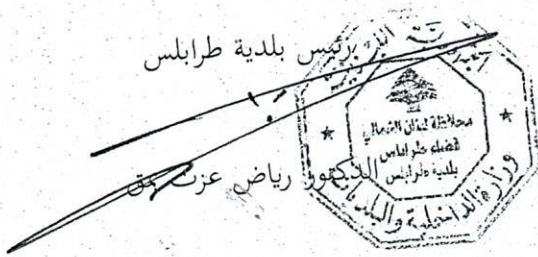 رئيس بلدية طرابلس
الدكتور رياض عزت يمق
محافظة لبنان الشمالي
قضاء طرابلس
بلدية طرابلس
وزارة الداخلية والبلديات